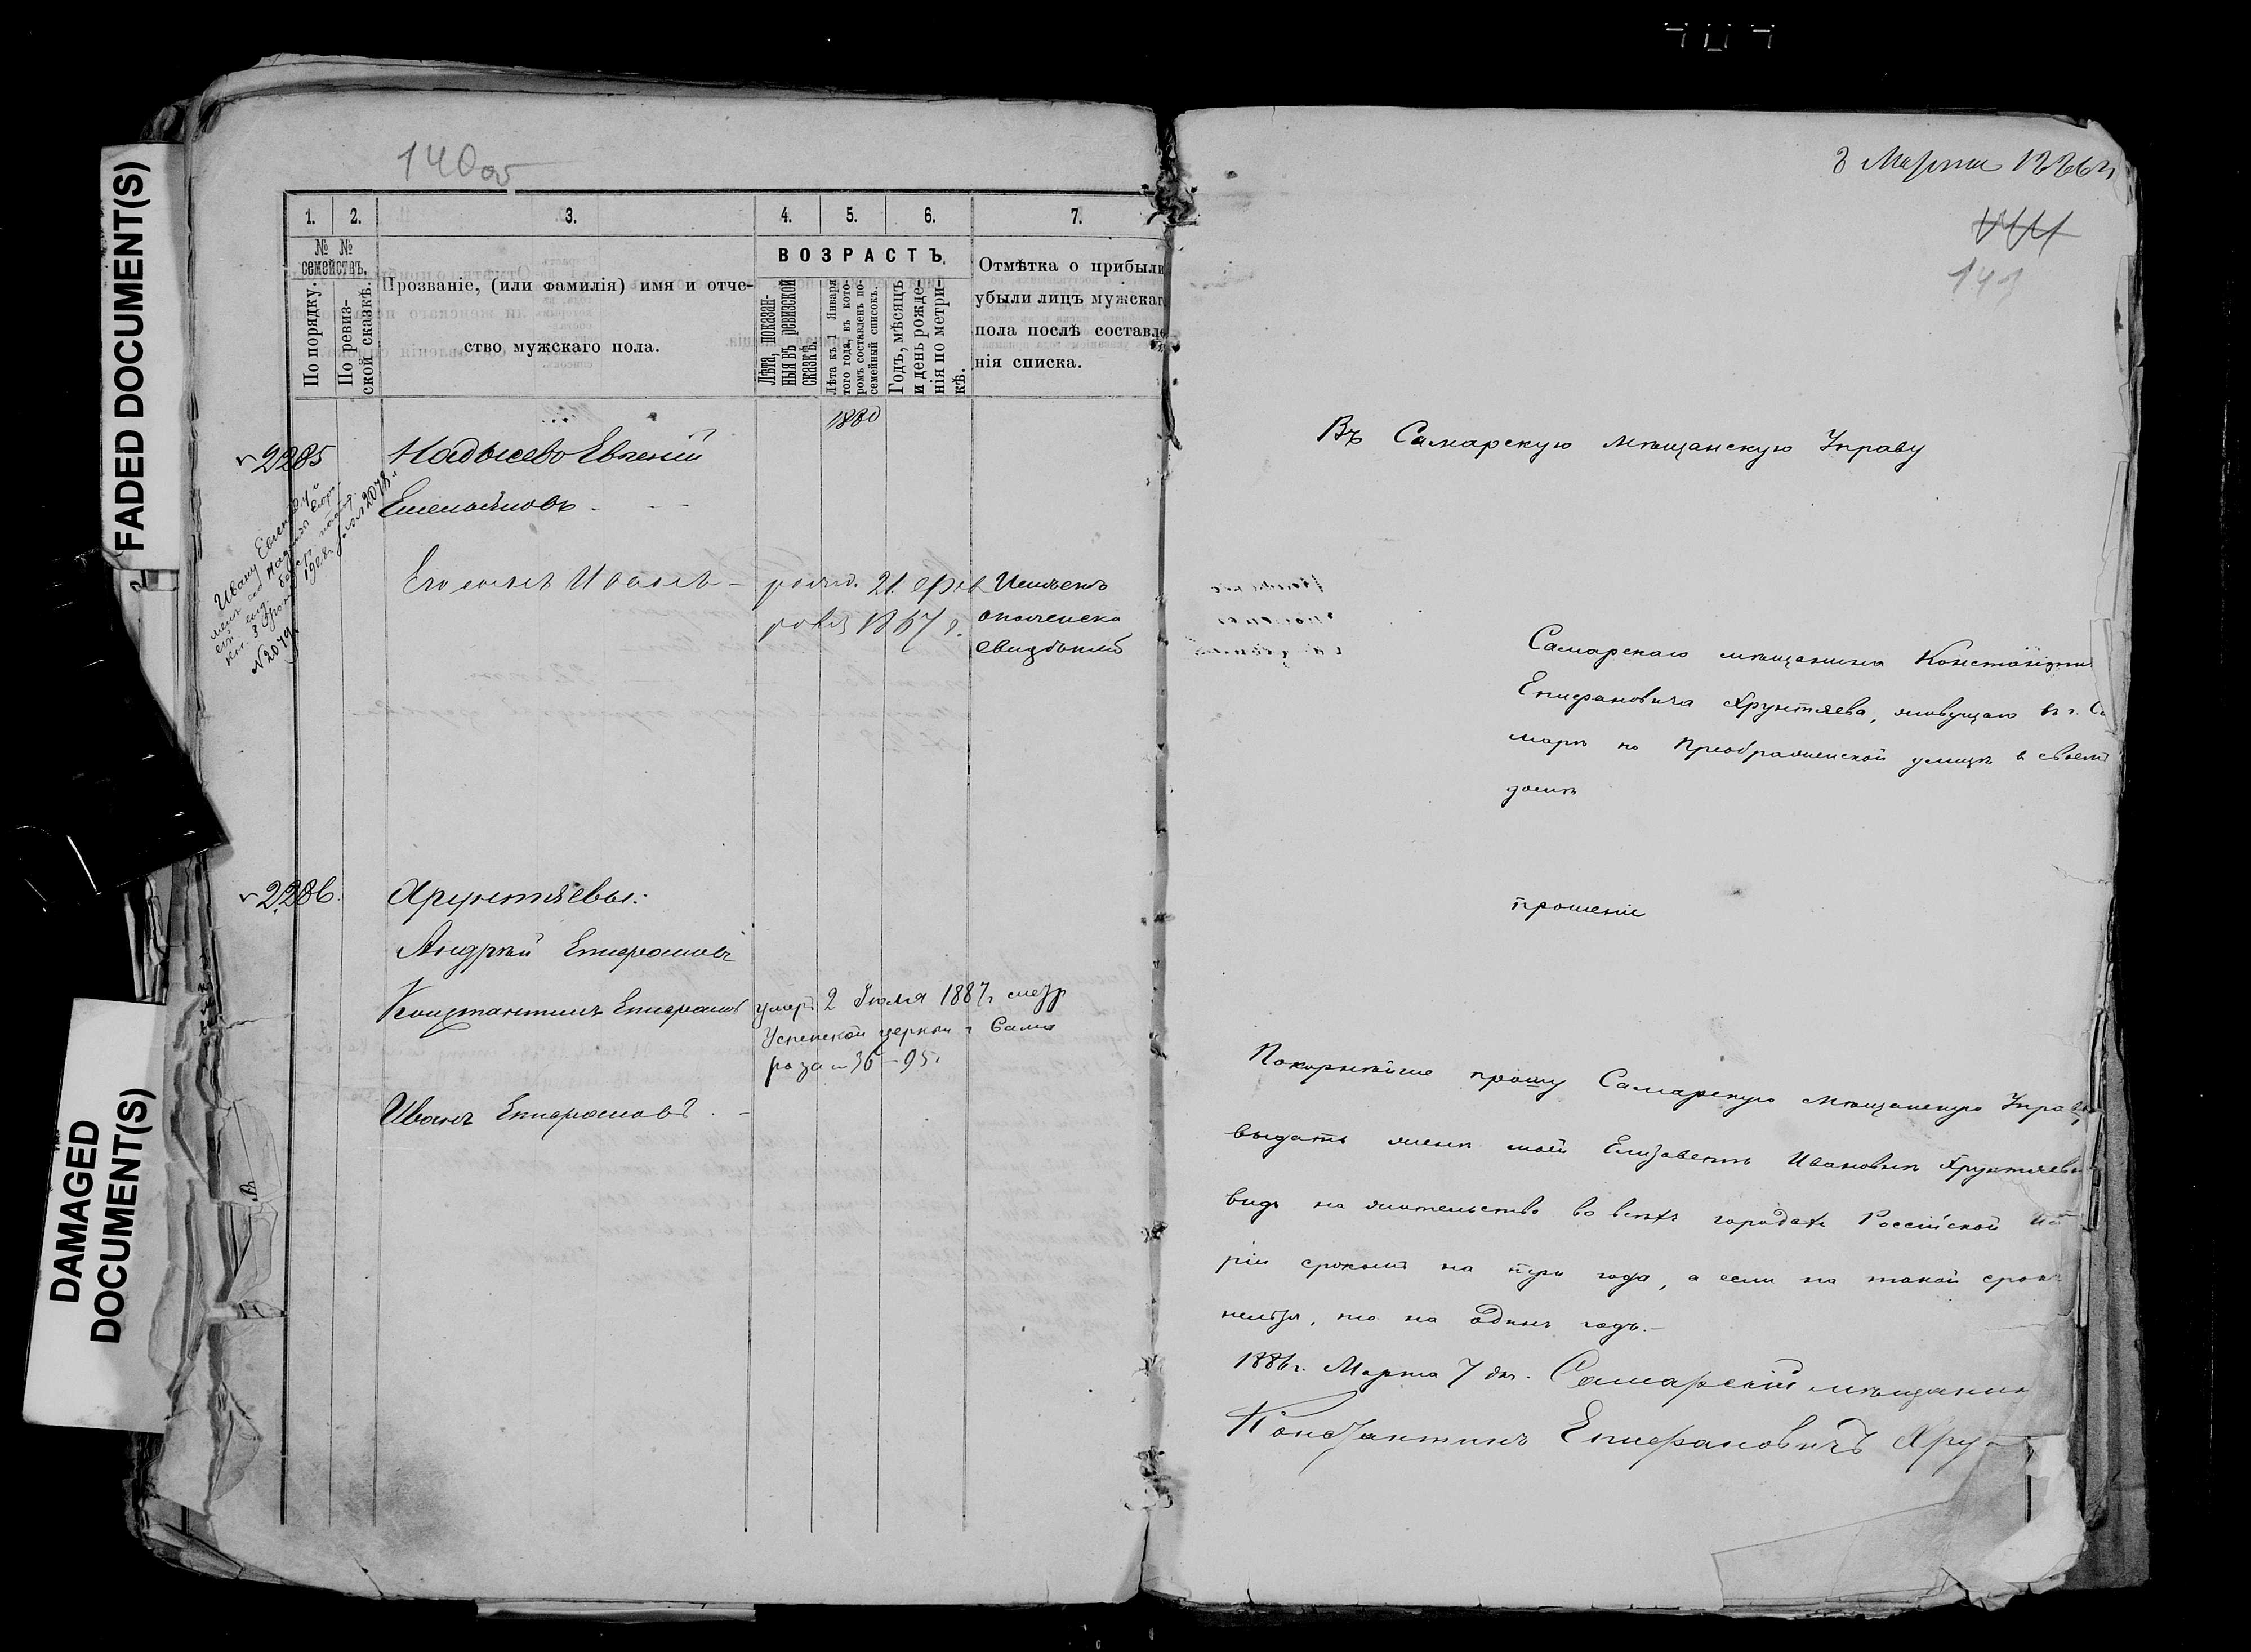 FADED DOCUMENT(S)
DAMAGED
DOCUMENT(S)
140об
1. 2. 3. 4. 5. 6. 7.
№ № семействъ.
По порядку.
По ревиз-
ской сказкѣ.
Прозваніе, (или фамилія) имя и отче-
ство мужскаго пола.
ВОЗРАСТЪ.
Лѣта, показан-
ныя въ ревизской
сказкѣ.
Лѣта къ 1 Января
того года, въ кото-
ромъ составленъ по-
семейный списокъ.
Годъ, мѣсяцъ
и день рожде-
нія по метри-
кѣ.
Отмѣтка о прибыли
убыли лицъ мужскаг
пола послѣ составле
нія списка.
1880
2285 Евгеній
Емельяновъ
Ивану
1908г.
№ 2079
Его сынъ Иванъ родил. 21 фев
раля 1867 г.
ополченско
2286. Хрунтяевы:
Андрей Епифановъ
Константинъ Епифановъ умеръ 2 Іюля 1887г метр
Успенской церкви г Сама
ра за № 36-95г
Иванъ Епифановъ
8 Марта 1886г
Въ Самарскую мѣщанскую Управу
Самарскаго мѣщанина Константи
Епифановича Хрунтяева, живущаго въ г. Са
марѣ на Преображенской улицѣ в своемъ
домѣ
прошеніе
Покорнѣйше прошу Самарскую Мѣщанскую Управу
выдать женѣ моей Елизаветѣ Ивановнѣ Хрунтяевой
видъ на жительство во всѣхъ городахъ Россійской Им
ріи срокомъ на три года, а если на такой срокъ
нельзя, то на одинъ годъ.—
1886г. Марта 7 дн. Самарскій мѣщанин
Константинъ Епифановичъ Хру